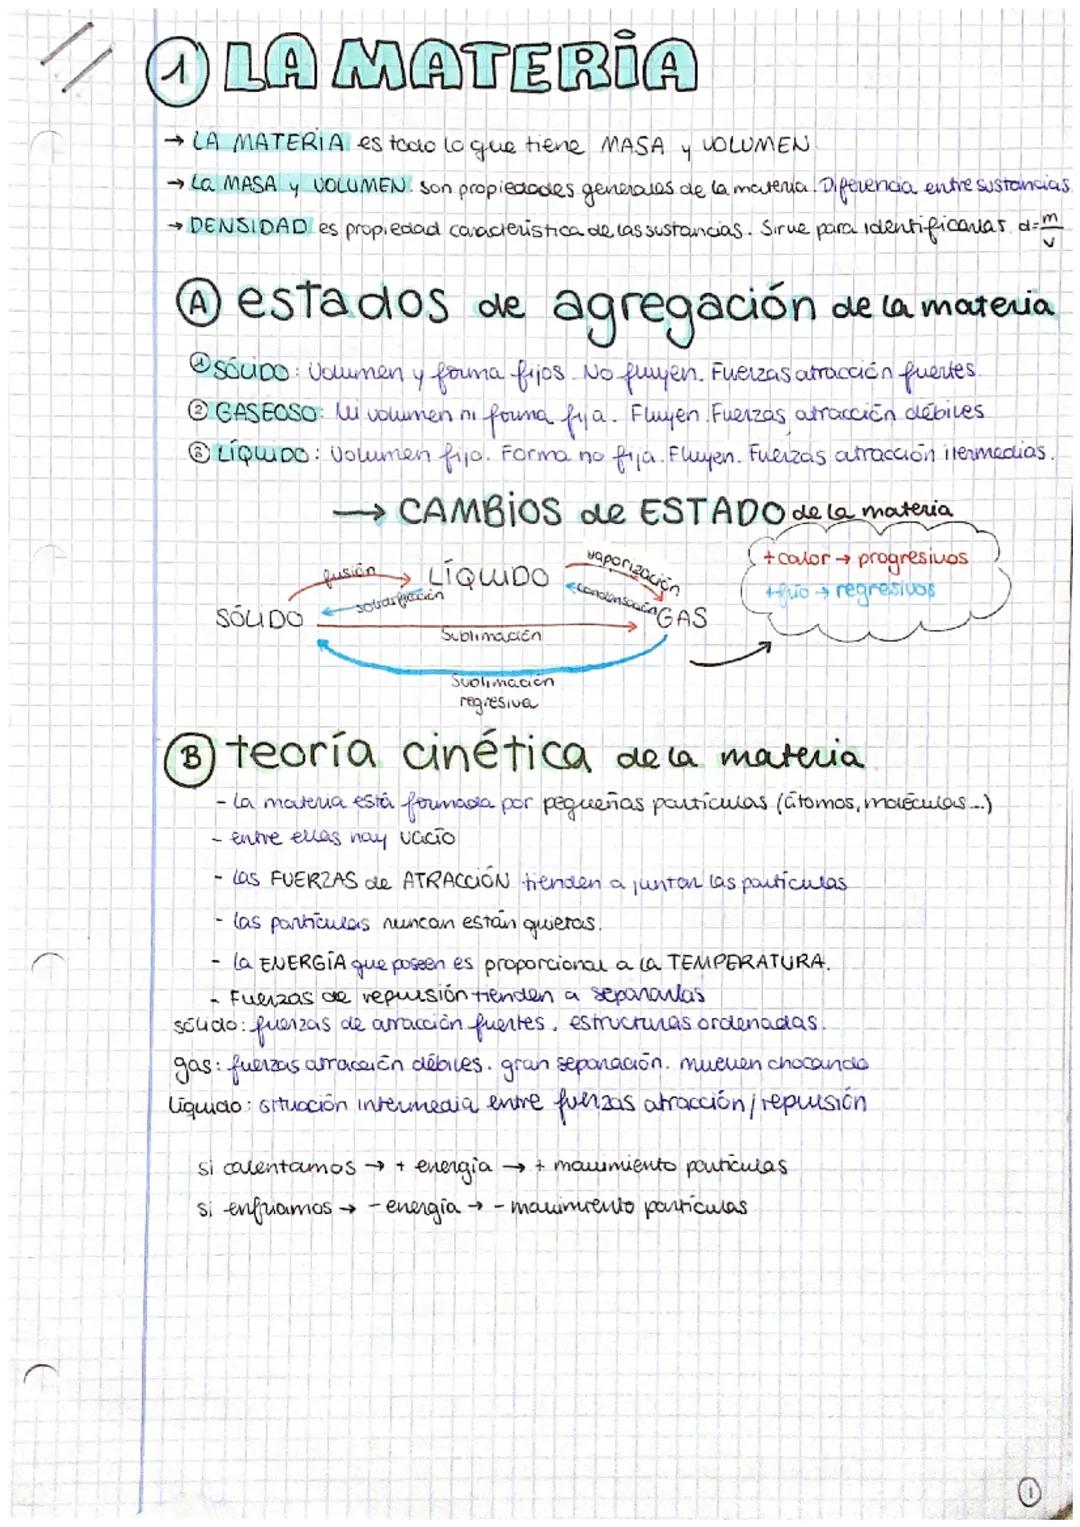 ① LA MATERIA
→ LA MATERIA es todo lo que tiene MASA y VOLUMEN
→ La MASA y VOLUMEN. son propiedades generales de la materia. Diferencia entre sustancias
→ DENSIDAD es propiedad característica de las sustancias. Sirve para identificarlas. d=m/v
Ⓐ estados de agregación de la materia
① SÓLIDO: Volumen y forma fijos. No fluyen. Fuerzas atracción fuertes.
② GASEOSO: Ni volumen ni forma fija. Fluyen. Fuerzas atracción débiles
③ LÍQUIDO: Volumen fijo. Forma no fija. Fluyen. Fuerzas atracción itermedias.
→ CAMBIOS de ESTADO de la materia
+ calor → progresivos
+ frío → regresivos
fusión
LÍQUIDO
vaporización
solidificación
condensación
SÓLIDO
GAS
Sublimación
Sublimación
regresiva
Ⓑ teoría cinética de la materia
- La materia está formada por pequeñas partículas (átomos, moléculas...)
- entre ellas hay vacío
- las FUERZAS de ATRACCIÓN tienden a juntar las partículas
- las partículas nuncan están quietas.
- la ENERGÍA que poseen es proporcional a la TEMPERATURA.
- Fuerzas de repulsión tienden a separarlas
sólido: fuerzas de atracción fuertes. estructuras ordenadas.
gas: fuerzas atracción débiles. gran separación. mueven chocando
líquido: situación intermedia entre fuerzas atracción/repulsión
si calentamos → + energía → + movimiento partículas
si enfriamos → - energía → - movimiento partículas
①